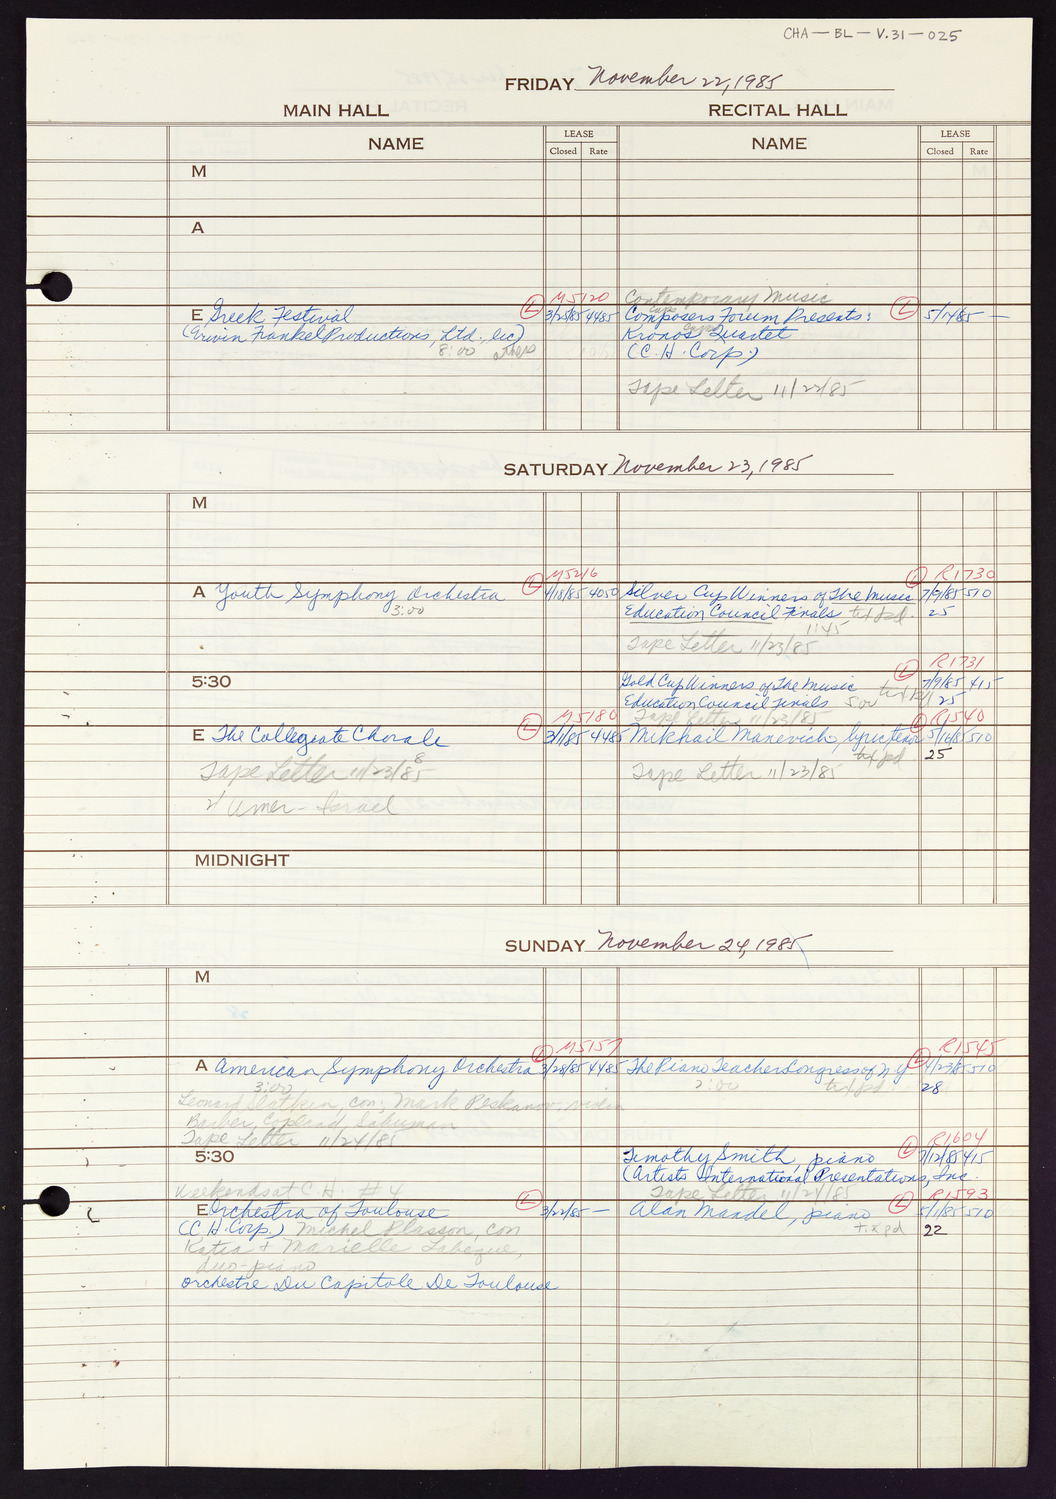 CHA — BL — V.31 — 025
FRIDAY November 22, 1985
MAIN HALL RECITAL HALL
NAME LEASE Closed Rate NAME LEASE Closed Rate
M
A
M5120 Contemporary Music
E Greek Festival L 3/25/85 4485 Composers Forum Presents: L 5/1/85 —
(Ervin Frankel Productions, Ltd., Kronos Quartet
8:00 (C.H. Corp.)
Tape Letter 11/22/85
SATURDAY November 23, 1985
M
M5216 R1730
A Youth Symphony Orchestra L 4/18/85 4050 Silver Cup Winners of The Music L 7/9/85 510
3:00 Education Council Finals txt pd. 25
1:45
Tape Letter 11/23/85
R1731
5:30 Gold Cup Winners of The Music L 7/9/85 415
Education Council Finals 5:00 25
M5180 Tape Letter 11/23/85 R1540
E The Collegiate Chorale L 3/11/85 4485 Mikhail Manevich, lyric tenor L 5/16/85 510
8 txt pd 25
Tape Letter 11/23/85 Tape Letter 11/23/85
Amer-Israel
MIDNIGHT
SUNDAY November 24, 1985
M
M5157 R1545
A American Symphony Orchestra L 3/28/85 4485 The Piano Teachers Congress of N.Y L 4/23/85 510
3:00 2:00 txt pd 28
Leonard Slatkin, con; Mark Peskanov, violin
Barber, Copland, Schuman
Tape Letter 11/24/85
R1604
5:30 Timothy Smith, piano L 7/12/85 415
(Artists International Presentations, Inc.
Weekends at C.H. #4 Tape Letter 11/24/85 R1593
E Orchestra of Toulouse L 3/22/85 — Alan Mandel, piano L 5/1/85 510
(C.H. Corp.) Michel Plasson, con tix pd 22
Katia + Marielle Labeque,
duo-piano
Orchestre Du Capitole De Toulouse